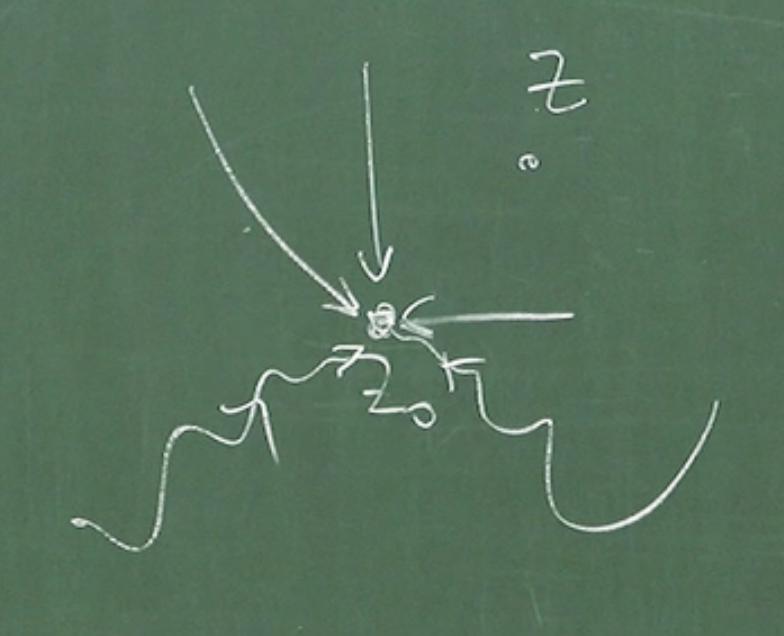 Z
z₀